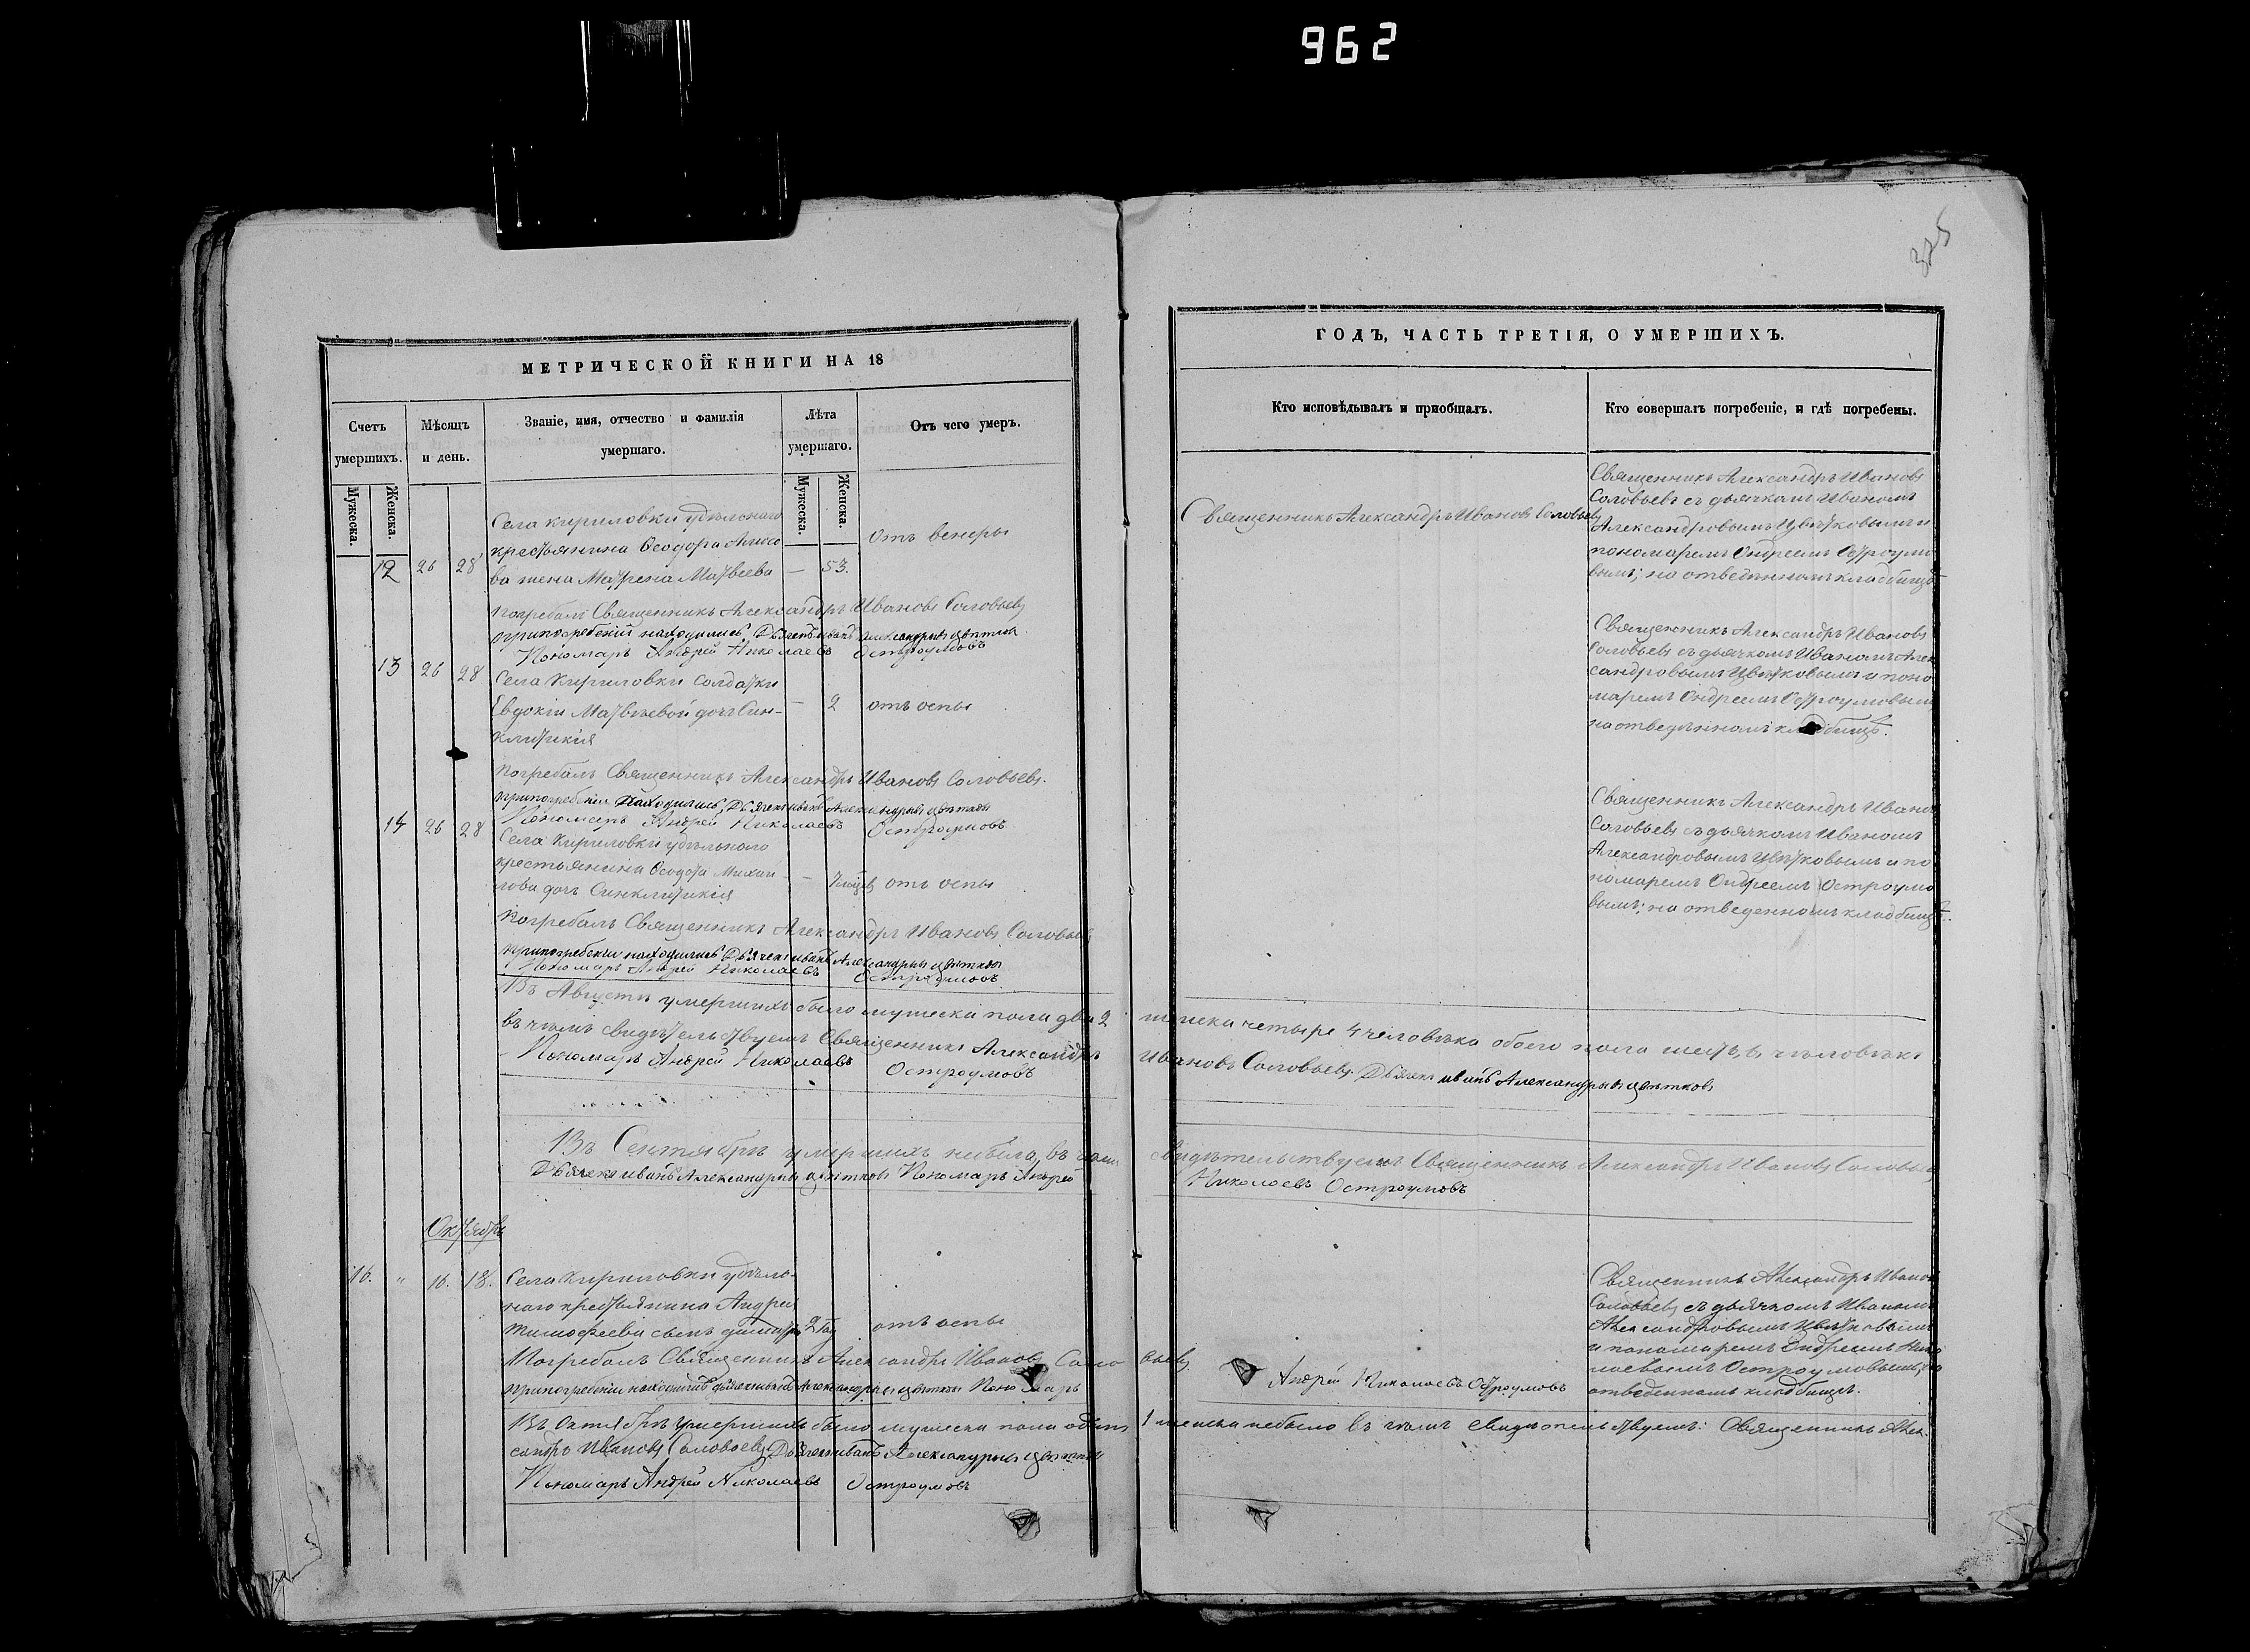 962
325
МЕТРИЧЕСКОЙ КНИГИ НА 18
Счетъ умершихъ.
Мужеска.
Женска.
Мѣсяцъ и день.
Званіе, имя, отчество и фамилія
умершаго.
Лѣта
умершаго.
Мужеска.
Женска.
Отъ чего умеръ.
12 26 28
Села Кириловки удѣлснаго
крестьянина Ѳеодора
ва жена Матрена Матвеева — 53.
отъ венеры
Погребалъ Священникъ Александръ Ивановъ Соловьевъ
припогребеніи находились Дьячекъ иванъ александрывъ цвѣтковъ
Пономарь Андрей Николаевъ Остроумовъ
13 26 28 Села Кириловки солдатки
Евдокіи Матвѣевой дочь Син- — 2 отъ оспы
клитикія
Погребалъ Священникъ Александръ Ивановъ Соловьевъ.
припогребеніи находились Дьячекъ иванъ Александрывъ цвѣтковъ
Пономарь Андрей Николаевъ Остроумовъ
14 26 28
Села Кириловки удѣльнаго
крестьянина Ѳеодота Михаи-
лова дочь Синклитикія — отъ оспы
Погребалъ Священникъ Александръ Ивановъ Соловьевъ
припогребеніи находились Дьячекъ иванъ Александрывъ цвѣтковъ
Пономарь Андрей Николаевъ Остроумовъ
Въ Августѣ умершихъ было мужеска пола два 2
въ чѣмъ свидѣтельствуемъ Священникъ Александръ
Пономарь Андрей Николаевъ Остроумовъ
Въ Сентябрѣ умершихъ небыло, въ чемъ
Дьячекъ иванъ Александрывъ цвѣтковъ Пономарь Андрей
Октябрь
16. " 16. 18. Села Кириловки удѣль-
наго крестьянина Андрея
Тимофеева сынъ 2 отъ оспы
Погребалъ Священникъ Александръ Ивановъ Соло
припогребеніи находились дьячекъ иванъ Александрывъ цвѣтковъ Пономарь
Въ Октябрѣ умершихъ было мужеска пола одинъ
сандръ Ивановъ Соловьевъ Дьячекъ иванъ Александрывъ цвѣтковъ
Пономарь Андрей Николаевъ Остроумовъ
ГОДЪ, ЧАСТЬ ТРЕТІЯ, О УМЕРШИХЪ.
Кто исповѣдывалъ и пріобщалъ.
Кто совершалъ погребеніе, и гдѣ погребены.
Священникъ Александръ Ивановъ Соловьевъ
Священникъ Александръ Ивановъ
Соловьевъ съ дьячкомъ Иваномъ
Александровымъ Цвѣтковымъ и
пономаремъ Ондреемъ Остроумо
вымъ; на отведенномъ кладбищѣ
Священникъ Александръ Ивановъ
Соловьевъ съ дьячкомъ Иваномъ Алек
сандровымъ Цвѣтковымъ и поно
маремъ Ондреемъ Остроумовымъ
на отведѣнномъ кладбищѣ.
Священникъ Александръ Ивановъ
Соловьевъ съ дьячкомъ Иваномъ
Александровымъ Цвѣтковымъ и по
номаремъ Ондреемъ Остроумо
вымъ; на отведенномъ кладбищѣ.
женска четыре 4 человѣка обоего пола шесть человѣкъ
Ивановъ Соловьевъ Дьячекъ иванъ Александрывъ цвѣтковъ
свидѣтельствуемъ Священникъ Александръ Ивановъ Соловьевъ
Николаевъ Остроумовъ
Священникъ Александръ Ивановъ
Соловьевъ съ дьячкомъ Иваномъ
Александровымъ Цвѣтковымъ
и пономаремъ Ондреемъ Нико
лаевымъ Остроумовымъ, на
отведенномъ кладбищѣ.
вьевъ Андрей Николаевъ Остроумовъ
1 женска небыло въ чѣмъ свидѣтельствуемъ: Священникъ Алек